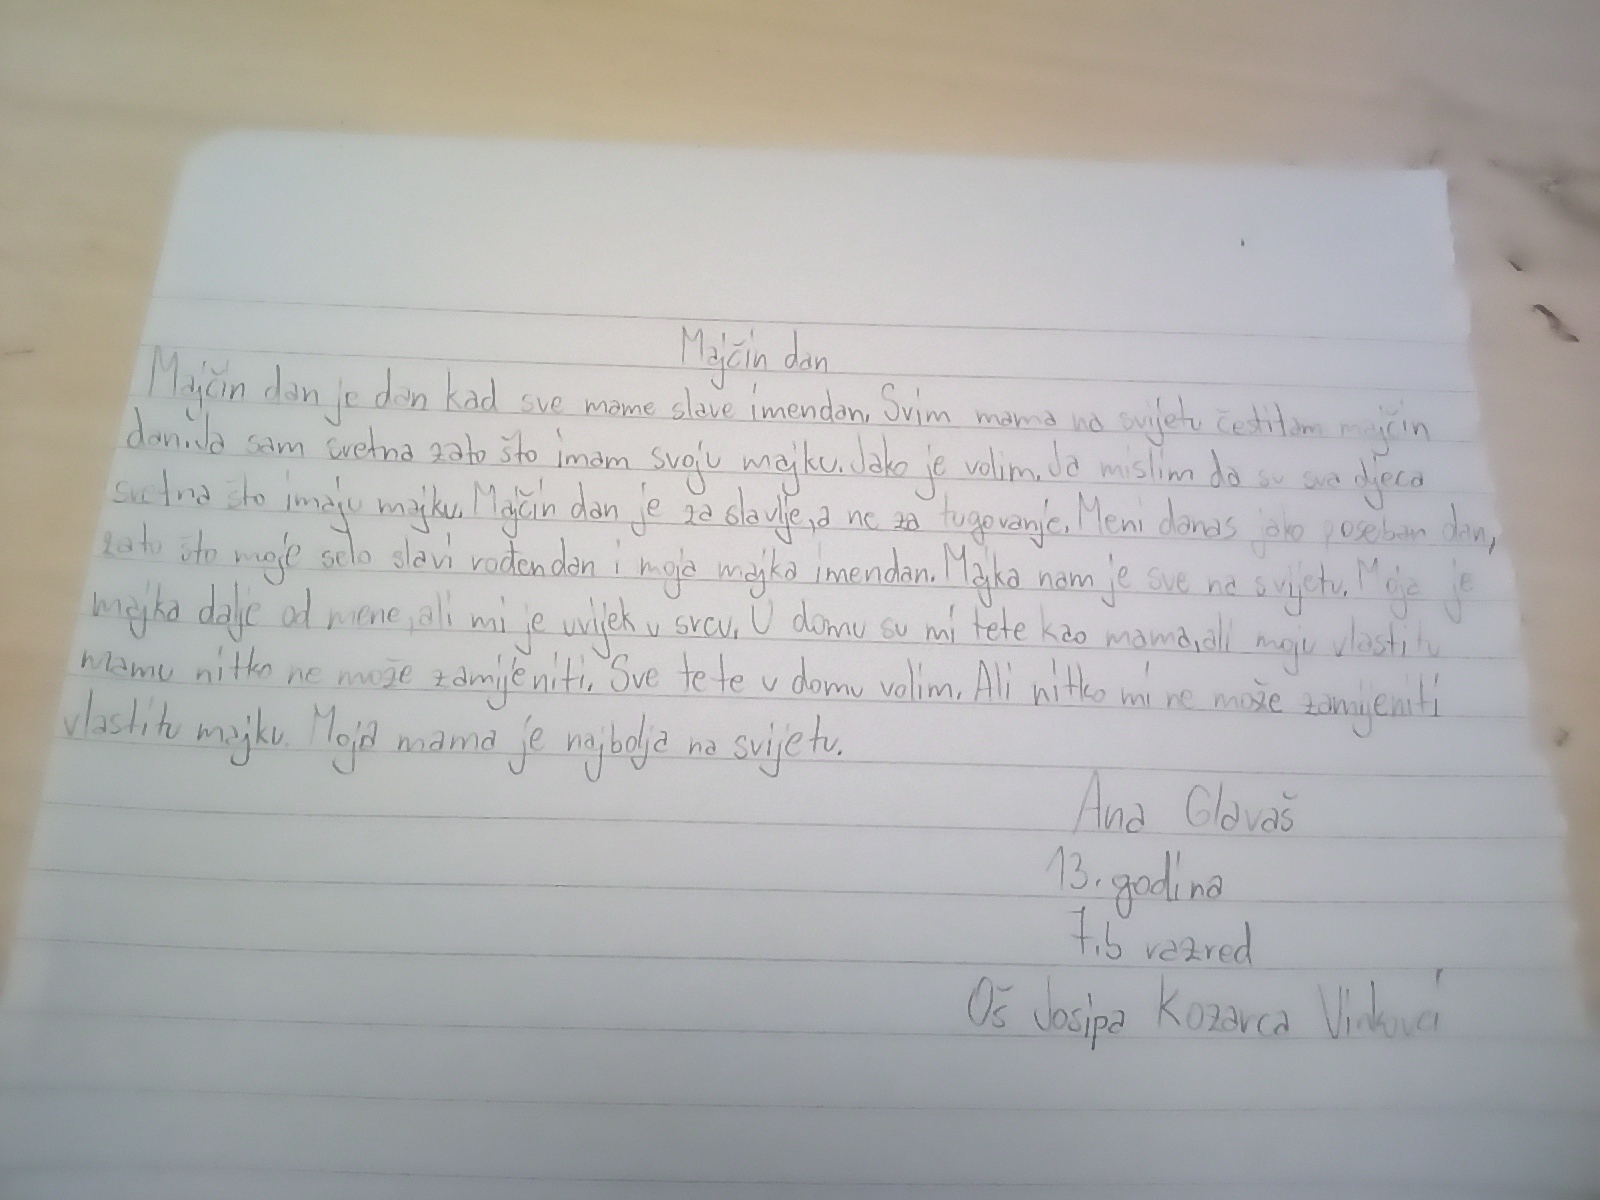 Majčin dan
Majčin dan je dan kad sve mame slave imendan. Svim mama na svijetu čestitam majčin
dan. Ja sam sretna zato što imam svoju majku. Jako je volim. Ja mislim da su sva djeca
sretna što imaju majku. Majčin dan je za slavlje, a ne za tugovanje. Meni danas jako poseban dan,
zato što moje selo slavi rođendan i moja majka imendan. Majka nam je sve na svijetu. Moja je
majka dalje od mene, ali mi je uvijek u srcu. U domu su mi tete kao mama, ali moju vlastitu
mamu nitko ne može zamijeniti. Sve tete u domu volim. Ali nitko mi ne može zamijeniti
vlastitu majku. Moja mama je najbolja na svijetu.
Ana Glavaš
13. godina
7.b razred
Oš Josipa Kozarca Vinkovci